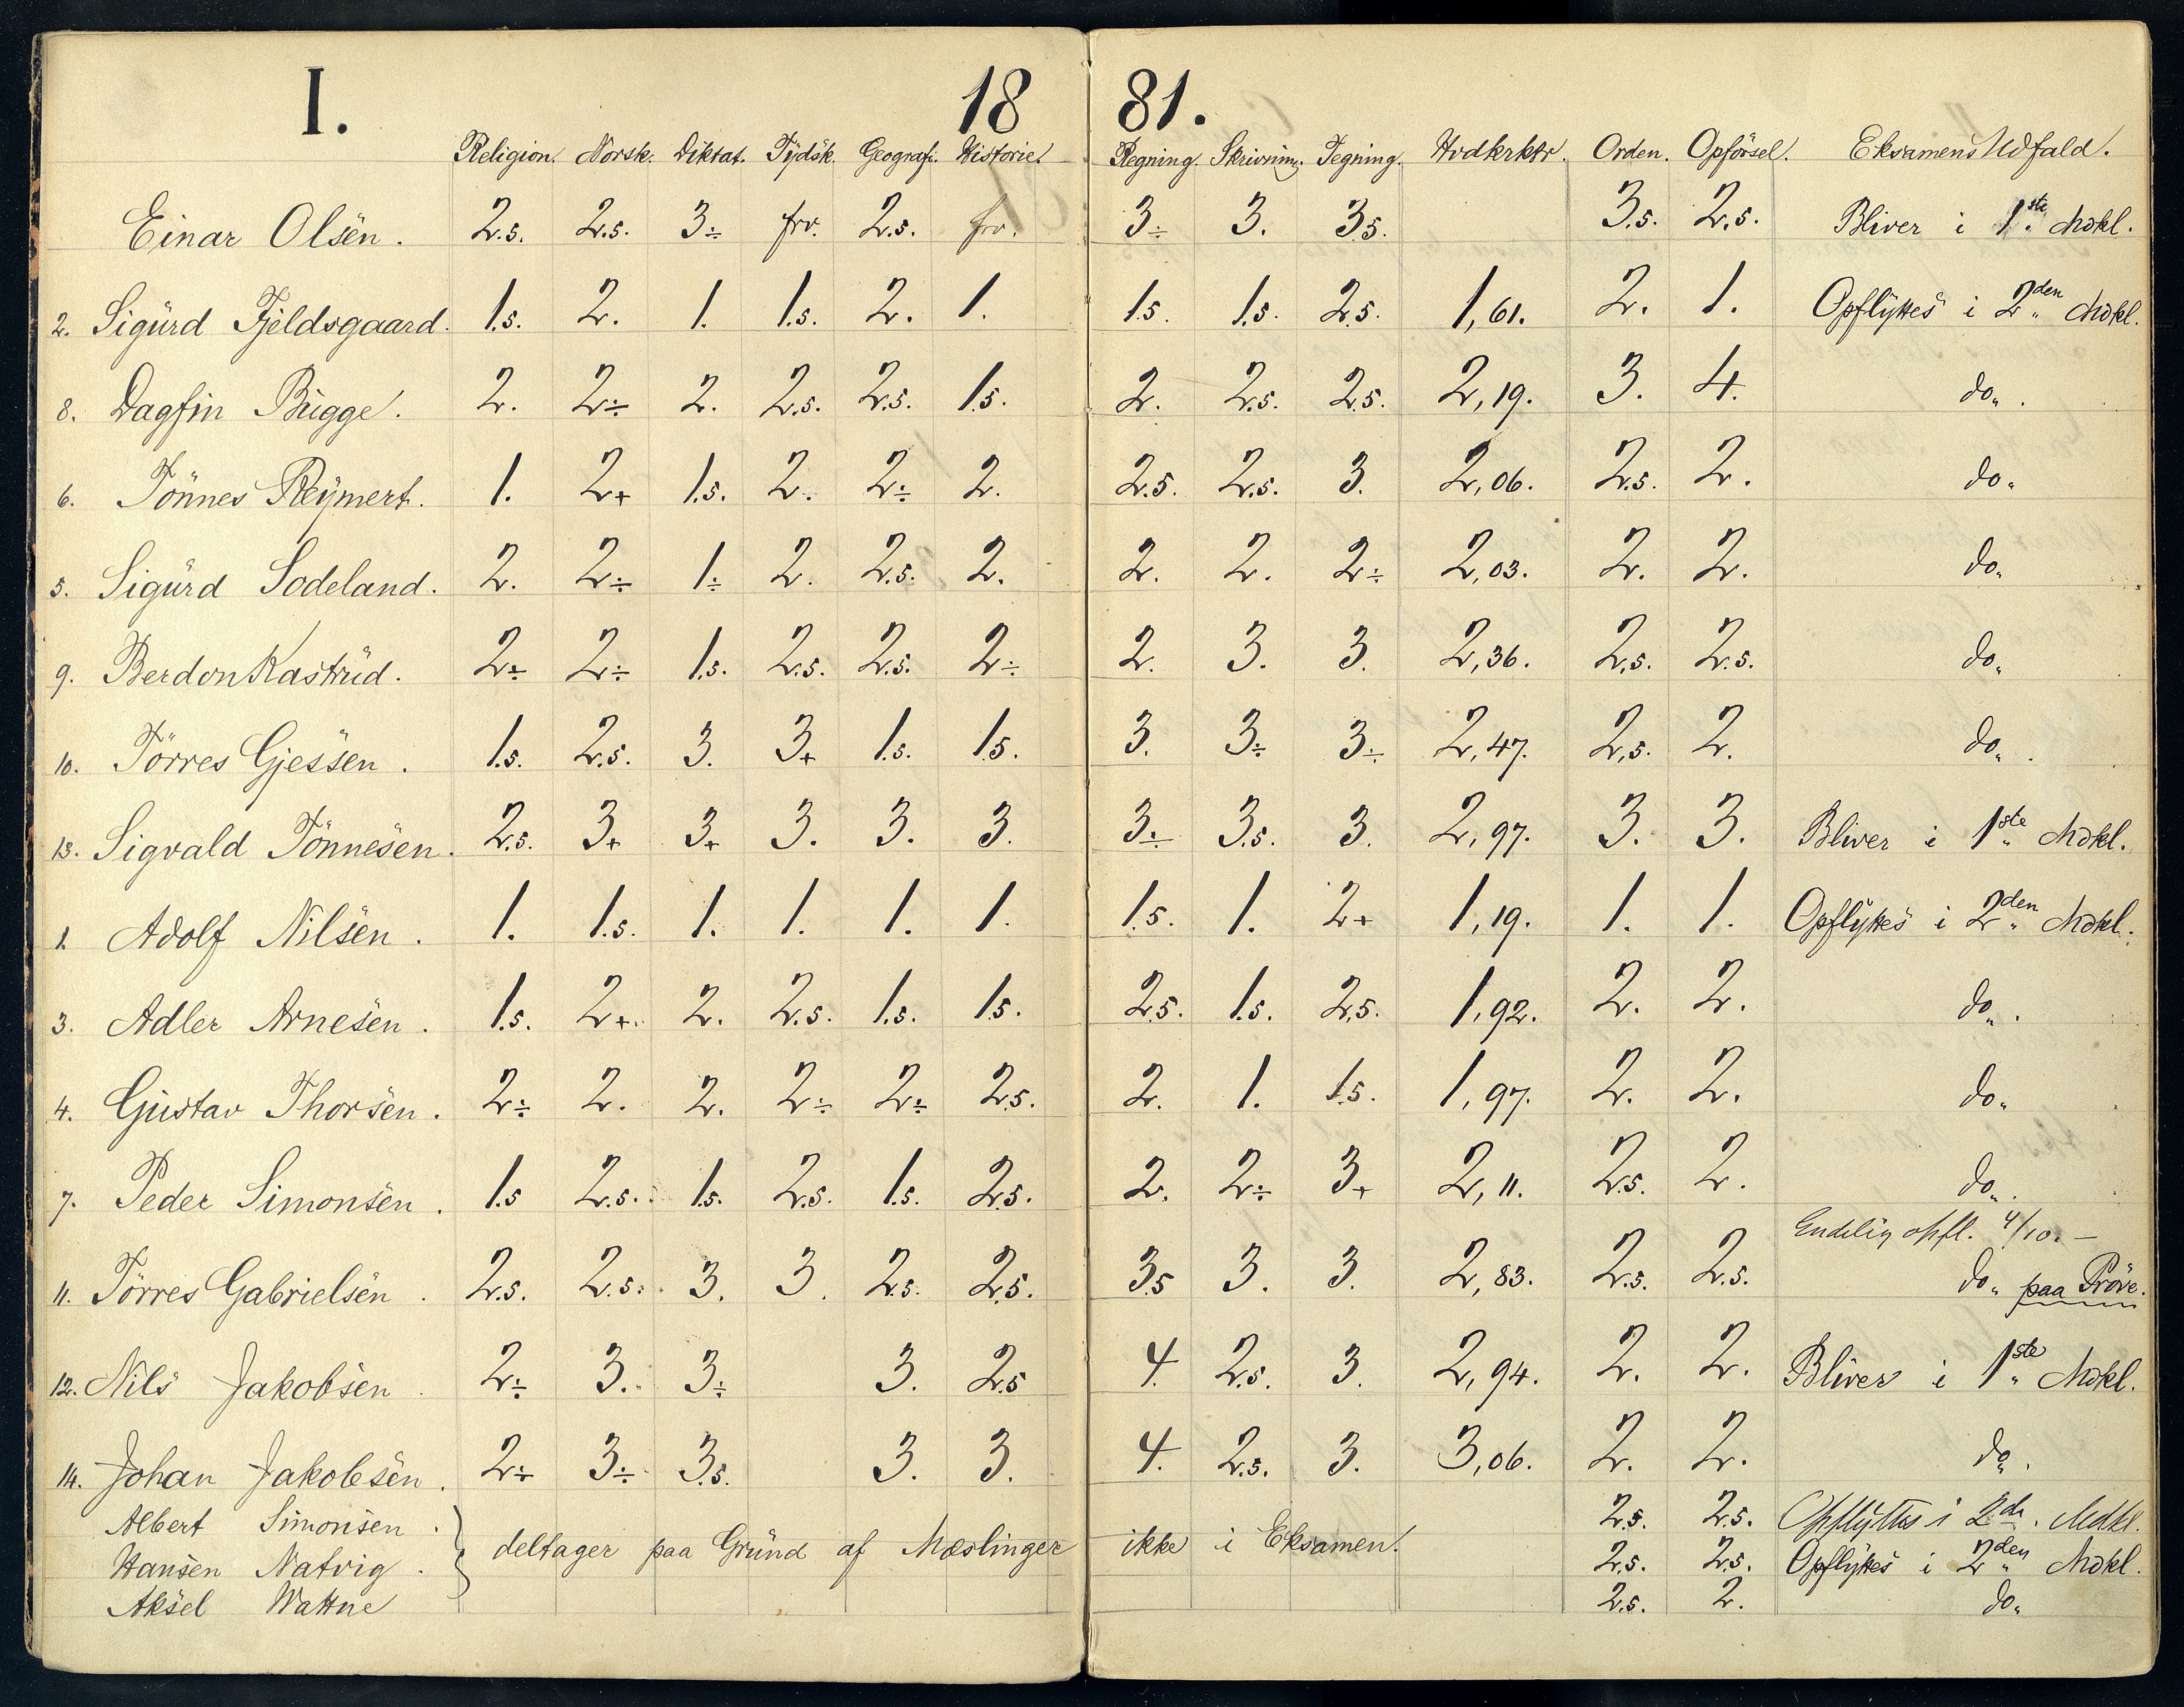 I. 18 81.
Religion. Norsk. Diktat. Tydsk. Geografi. Historie. Regning. Skrivning. Tegning. Hvdkrktr. Orden. Opförsel. Eksamens Udfald.
Einar Olsen. 2.5. 2.5. 3÷ frv. 2.5. frv. 3÷ 3. 3.5. 3.5. 2.5. Bliver i 1ste Mdkl.
2. Sigurd Fjeldsgaard. 1.5. 2. 1. 1.5. 2. 1. 1.5. 1.5. 2.5. 1,61. 2. 1. Opflyttes i 2den Mdkl.
8. Dagfin Bugge. 2. 2÷ 2. 2.5. 2.5. 1.5. 2. 2.5. 2.5. 2,19. 3. 4. do.
6. Tönnes Reymert. 1. 2+ 1.5. 2. 2÷ 2. 2.5. 2.5. 3. 2,06. 2.5. 2. do.
5. Sigurd Sodeland. 2. 2÷ 1÷ 2. 2.5. 2. 2. 2. 2÷ 2,03. 2. 2. do.
9. Berdon Kastrud. 2÷ 2÷ 1.5. 2.5. 2.5. 2÷ 2. 3. 3. 2,36. 2.5. 2.5. do.
10. Törres Gjessen. 1.5. 2.5. 3. 3+ 1.5. 1.5. 3. 3÷ 3÷ 2,47. 2,5. 2. do.
13. Sigvald Tönnesen. 2.5. 3+ 3+ 3. 3. 3. 3÷ 3.5. 3. 2,97. 3. 3. Bliver i 1ste Mdkl.
1. Adolf Nilsen. 1. 1.5. 1. 1. 1. 1. 1.5. 1. 2+ 1,19. 1. 1. Opflyttes i 2den Mdkl.
3. Adler Arnesen. 1.5. 2+. 2. 2.5. 1.5. 1.5. 2.5. 1.5. 2.5. 1,92. 2. 2. do.
4. Gustav Thorsen. 2÷ 2. 2. 2÷ 2÷ 2.5. 2. 1. 1.5. 1,97. 2. 2. do.
7. Peder Simonsen. 1.5 2.5. 1.5. 2.5. 1.5. 2.5. 2. 2÷ 3+ 2,11. 2.5. 2. do.
Endelig opfl. 4/10. –
11. Törres Gabrielsen. 2.5. 2.5. 3. 3. 2.5. 2.5. 3.5 3. 3. 2,83. 2.5. 2.5. do. paa Pröve.
12. Nils Jakobsen. 2÷ 3. 3÷ 3. 2.5 4. 2.5. 3. 2,94. 2. 2. Bliver i 1ste Mdkl.
14. Johan Jakobsen. 2÷ 3÷ 3.5. 3. 3. 4. 2.5. 3. 3,06. 2. 2. do.
Albert Simonsen. 2.5. 2.5. Opflyttes i 2den. Mdkl.
Hansen Natvig. deltager paa Grund af Mæslinger ikke i Eksamen. 2.5. 2.5. Opflyttes i 2den Mdkl.
Aksel Wattne 2.5. 2. do.